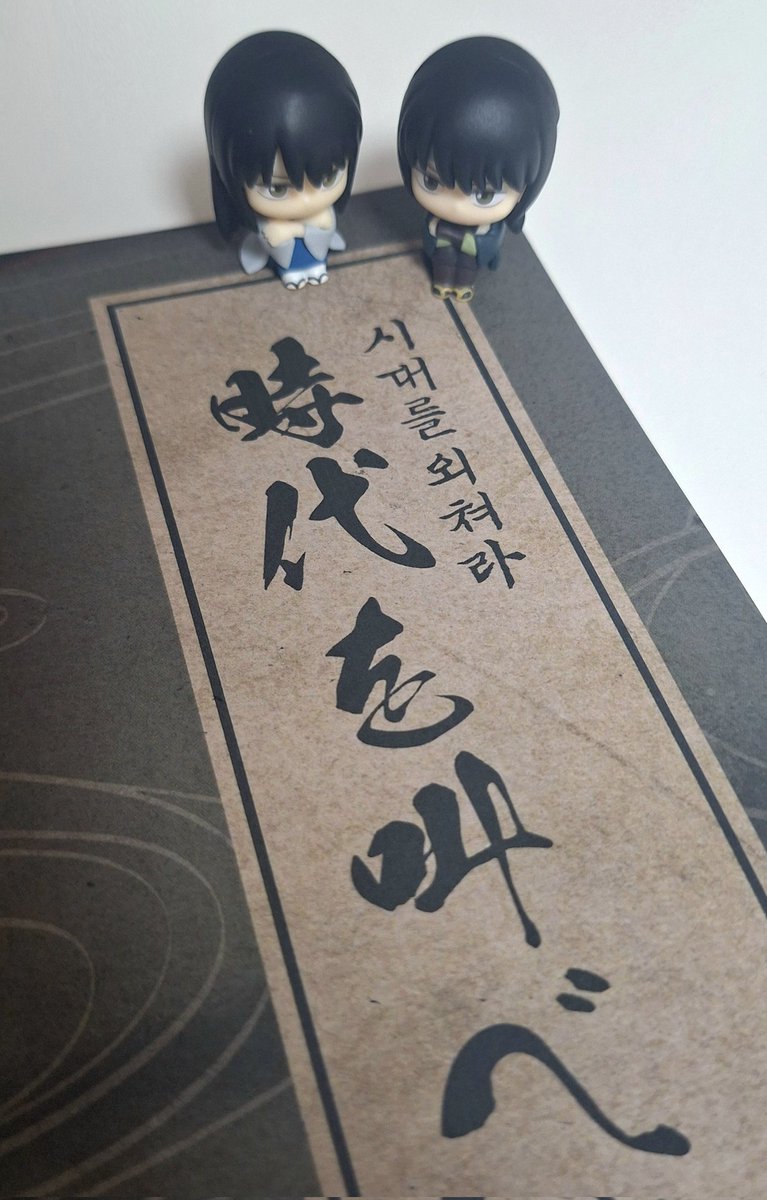 시대를 외쳐라
時代を叫べ